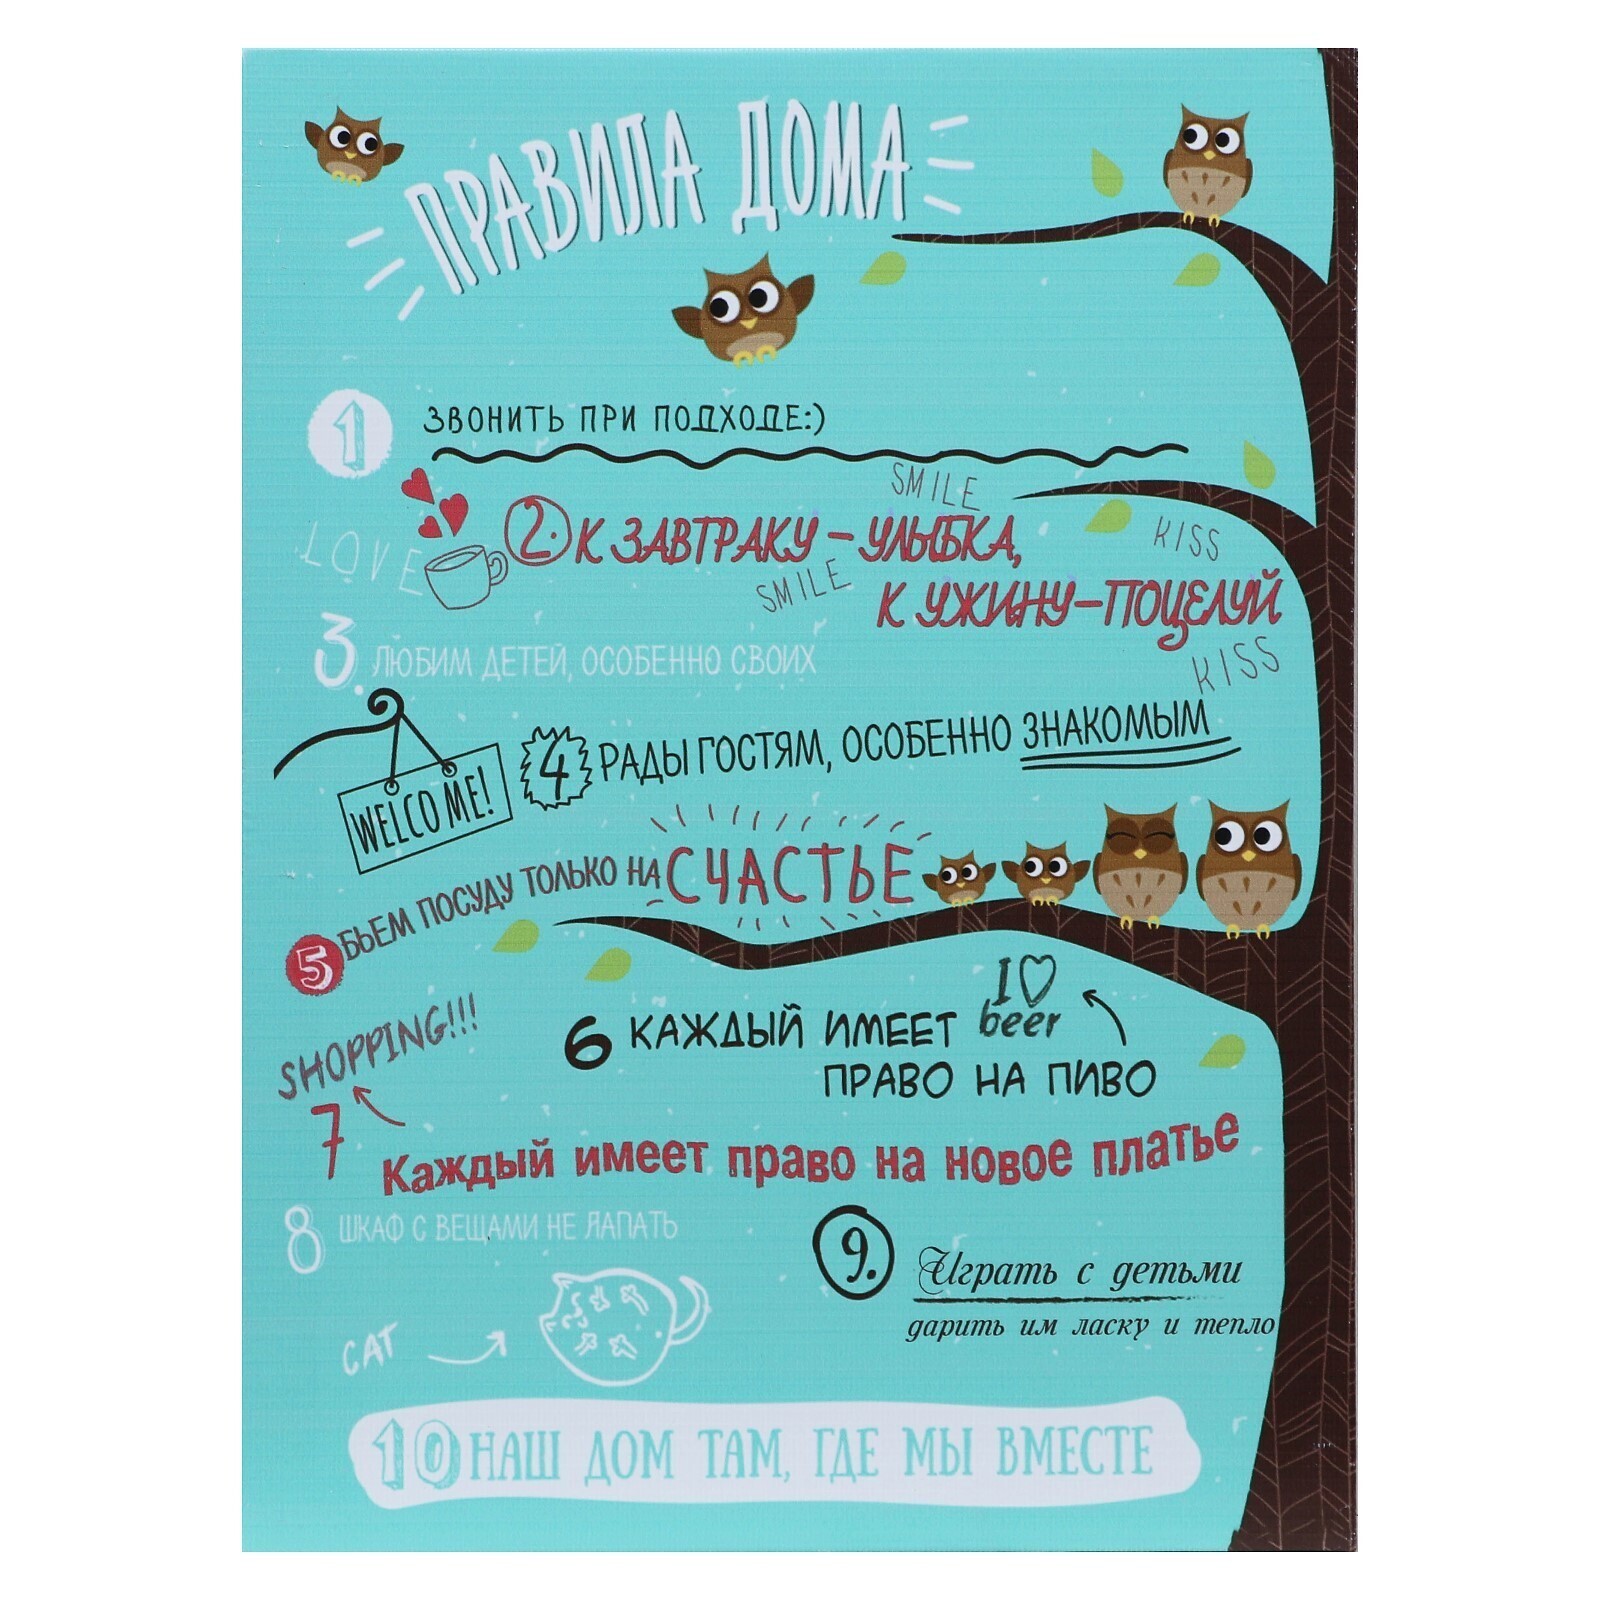 ПРАВИЛА ДОМА
1 ЗВОНИТЬ ПРИ ПОДХОДЕ:)
SMILE
LOVE
2. К ЗАВТРАКУ – УЛЫБКА,
KISS
SMILE
К УЖИНУ – ПОЦЕЛУЙ
KISS
3. ЛЮБИМ ДЕТЕЙ, ОСОБЕННО СВОИХ
WELCOME!
4 РАДЫ ГОСТЯМ, ОСОБЕННО ЗНАКОМЫМ
5 БЬЕМ ПОСУДУ ТОЛЬКО НА СЧАСТЬЕ
I ♡
beer
6 КАЖДЫЙ ИМЕЕТ
ПРАВО НА ПИВО
SHOPPING!!!
7 Каждый имеет право на новое платье
8 ШКАФ С ВЕЩАМИ НЕ ЛАПАТЬ
9. Играть с детьми
дарить им ласку и тепло
CAT
10 НАШ ДОМ ТАМ, ГДЕ МЫ ВМЕСТЕ